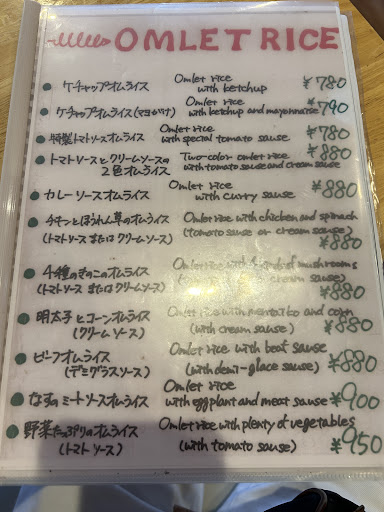 OMLET RICE
ケチャップオムライス Omlet rice
with ketchup ¥780
ケチャップオムライス(マヨかけ) Omlet rice
with ketchup and mayonnaise ¥790
特製トマトソースオムライス Omlet rice
with special tomato sause ¥780
トマトソースとクリームソースの Two-color omlet rice
2色オムライス with tomato sause and cream sause ¥880
カレーソースオムライス Omlet rice
with curry sause ¥880
チキンとほうれん草のオムライス Omlet rice with chicken and spinach
(トマトソース または クリームソース) (tomato sause or cream sause)
¥880
4種のきのこのオムライス Omlet rice with 4 kinds of mushrooms
(トマトソース または クリームソース) cream sause)
¥880
明太子とコーンオムライス Omlet rice with mentaiko and corn
(クリームソース) (with cream sause) ¥880
ビーフオムライス Omlet rice with beaf sause
(デミグラスソース) (with demi-glace sause) ¥880
なすのミートソースオムライス Omlet rice
with eggplant and meat sause ¥900
野菜たっぷりのオムライス Omlet rice with plenty of vegetables
(トマトソース) (with tomato sause) ¥950